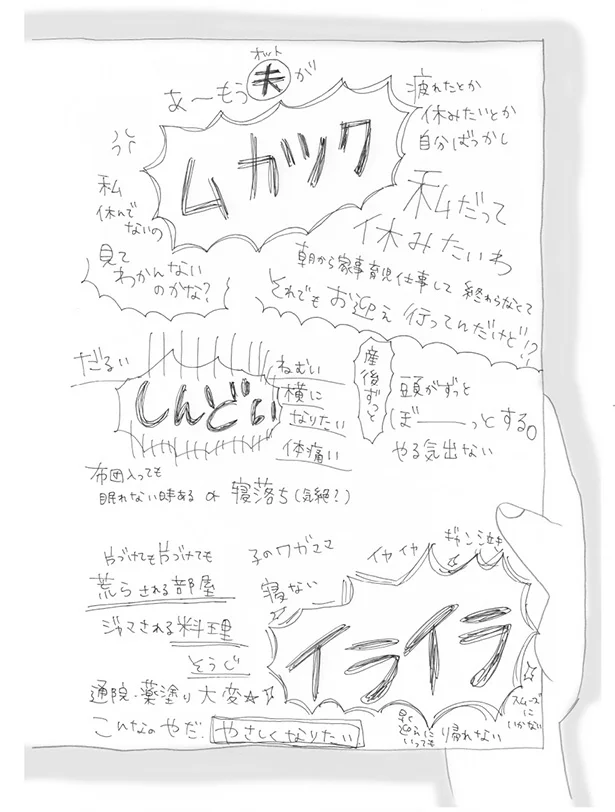 あ〜もう夫が
オット
ムカツク
疲れたとか
休みたいとか
自分ばっかし
私
休んで
ないの
見て
わかんない
のかな?
私だって
休みたいわ
朝から家事育児仕事して 終わらなくて
それでもお迎え行ってんだけど!?
だるい
しんどい
ねむい
横に
なりたい
体痛い
産後ずっと
頭がずっと
ぼーーっとする。
やる気出ない
布団入っても
眠れない時ある or 寝落ち(気絶?)
片づけても片づけても
荒らされる部屋
ジャマされる料理
そうじ
通院・薬塗り大変☆
こんなのやだ.
やさしくなりたい
子のワガママ
イヤイヤ
ギャン泣き
寝ない
イライラ
スムーズ
に
いかない
早く
迎えに
いっても
帰れない